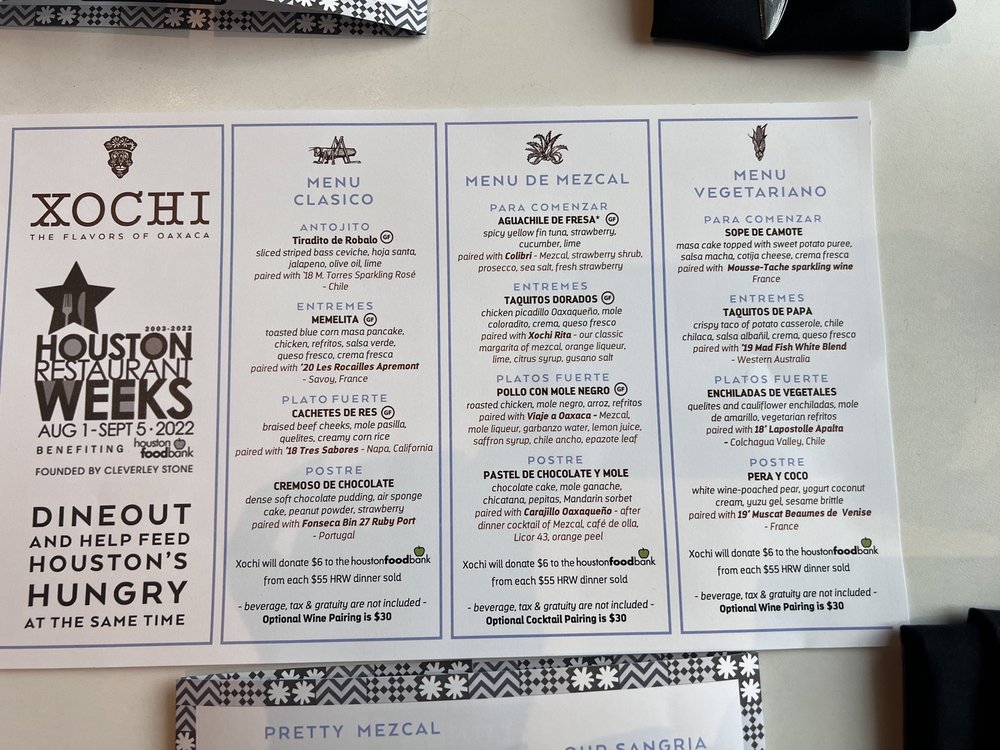 XOCHI
THE FLAVORS OF OAXACA
2003-2022
HOUSTON
RESTAURANT
WEEKS
AUG 1 - SEPT 5 • 2022
BENEFITING houston
foodbank
FOUNDED BY CLEVERLEY STONE
DINEOUT
AND HELP FEED
HOUSTON'S
HUNGRY
AT THE SAME TIME
MENU
CLASICO
ANTOJITO
Tiradito de Robalo GF
sliced striped bass ceviche, hoja santa,
jalapeno, olive oil, lime
paired with '18 M. Torres Sparkling Rosé
- Chile
ENTREMES
MEMELITA GF
toasted blue corn masa pancake,
chicken, refritos, salsa verde,
queso fresco, crema fresca
paired with '20 Les Rocailles Apremont
- Savoy, France
PLATO FUERTE
CACHETES DE RES GF
braised beef cheeks, mole pasilla,
quelites, creamy corn rice
paired with '18 Tres Sabores - Napa, California
POSTRE
CREMOSO DE CHOCOLATE
dense soft chocolate pudding, air sponge
cake, peanut powder, strawberry
paired with Fonseca Bin 27 Ruby Port
- Portugal
Xochi will donate $6 to the houstonfoodbank
from each $55 HRW dinner sold
- beverage, tax & gratuity are not included -
Optional Wine Pairing is $30
MENU DE MEZCAL
PARA COMENZAR
AGUACHILE DE FRESA* GF
spicy yellow fin tuna, strawberry,
cucumber, lime
paired with Colibri - Mezcal, strawberry shrub,
prosecco, sea salt, fresh strawberry
ENTREMES
TAQUITOS DORADOS GF
chicken picadillo Oaxaqueño, mole
coloradito, crema, queso fresco
paired with Xochi Rita - our classic
margarita of mezcal, orange liqueur,
lime, citrus syrup, gusano salt
PLATOS FUERTE
POLLO CON MOLE NEGRO GF
roasted chicken, mole negro, arroz, refritos
paired with Viaje a Oaxaca - Mezcal,
mole liqueur, garbanzo water, lemon juice,
saffron syrup, chile ancho, epazote leaf
POSTRE
PASTEL DE CHOCOLATE Y MOLE
chocolate cake, mole ganache,
chicatana, pepitas, Mandarin sorbet
paired with Carajillo Oaxaqueño - after
dinner cocktail of Mezcal, café de olla,
Licor 43, orange peel
Xochi will donate $6 to the houstonfoodbank
from each $55 HRW dinner sold
- beverage, tax & gratuity are not included -
Optional Cocktail Pairing is $30
MENU
VEGETARIANO
PARA COMENZAR
SOPE DE CAMOTE
masa cake topped with sweet potato puree,
salsa macha, cotija cheese, crema fresca
paired with Mousse-Tache sparkling wine
France
ENTREMES
TAQUITOS DE PAPA
crispy taco of potato casserole, chile
chilaca, salsa albañil, crema, queso fresco
paired with '19 Mad Fish White Blend
- Western Australia
PLATOS FUERTE
ENCHILADAS DE VEGETALES
quelites and cauliflower enchiladas, mole
de amarillo, vegetarian refritos
paired with 18' Lapostolle Apalta
- Colchagua Valley, Chile
POSTRE
PERA Y COCO
white wine-poached pear, yogurt coconut
cream, yuzu gel, sesame brittle
paired with 19' Muscat Beaumes de Venise
- France
Xochi will donate $6 to the houstonfoodbank
from each $55 HRW dinner sold
- beverage, tax & gratuity are not included -
Optional Wine Pairing is $30
PRETTY MEZCAL
OUR SANGRIA